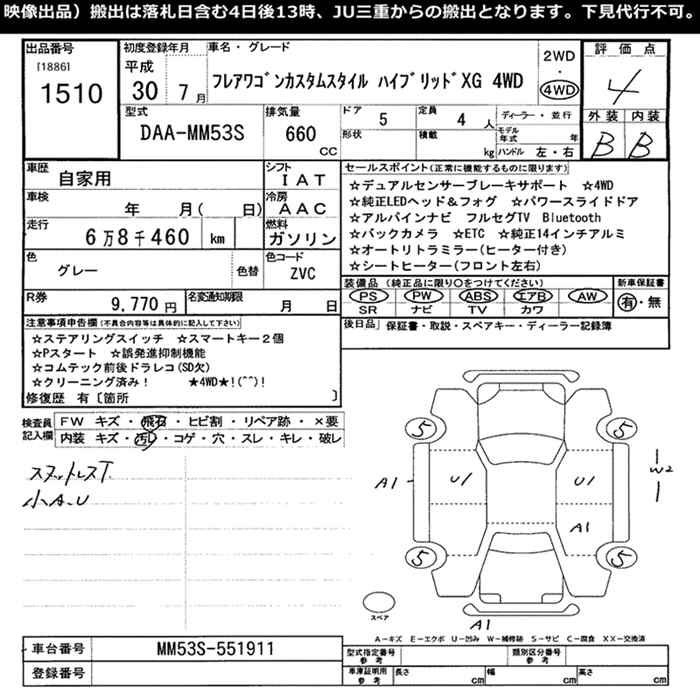 映像出品）搬出は落札日含む4日後13時、JU三重からの搬出となります。下見代行不可。
出品番号
[1886]
1510
初度登録年月
平成
30 年 7 月
車名・グレード
フレアワゴンカスタムスタイル ハイブリッドXG 4WD
2WD
・
4WD
評価点
4
外装 内装
B B
型式
DAA-MM53S
排気量
660
CC
ドア
5
定員
4 人
ディーラー・並行
形状
積載
kg
モデル年式 年
ハンドル 左・右
車歴
自家用
シフト
IAT
車検
年 月( 日)
冷房
AAC
走行
6万8千460 km
燃料
ガソリン
色
グレー
色替
色コード
ZVC
R券
9,770 円
名変通知期限
月 日
セールスポイント(正常に機能するものに限ります)
☆デュアルセンサーブレーキサポート ☆4WD
☆純正LEDヘッド&フォグ ☆パワースライドドア
☆アルパインナビ フルセグTV Bluetooth
☆バックカメラ ☆ETC ☆純正14インチアルミ
☆オートリトラミラー(ヒーター付き)
☆シートヒーター(フロント左右)
装備品(純正品に限り○をつけてください)
PS PW ABS エアB AW
SR ナビ TV カワ
新車保証書
有・無
後日品 保証書・取説・スペアキー・ディーラー記録簿
注意事項申告欄(不具合内容等は具体的に記入して下さい)
☆ステアリングスイッチ ☆スマートキー2個
☆Pスタート ☆誤発進抑制機能
☆コムテック前後ドラレコ(SD欠)
☆クリーニング済み！ ★4WD★!(^^)!
修復歴 有〔箇所 〕
検査員記入欄
FW キズ・飛石・ヒビ割・リペア跡・×要
内装 キズ・汚レ・コゲ・穴・スレ・キレ・破レ
スタットレスT
小A.U
5 5
A1 U1 U1 W2
A1
5 5
スペア
A1
A－キズ E－エクボ U－凹み W－補修跡 S－サビ C－腐食 XX－交換済
車台番号
MM53S-551911
登録番号
型式指定番号
参考
類別区分番号
参考
車庫証明用
参考
長さ cm 幅 cm 高さ cm